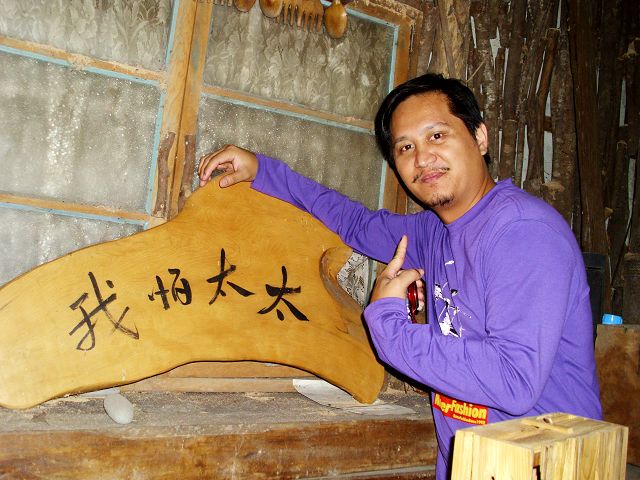 我怕太太
Fashion